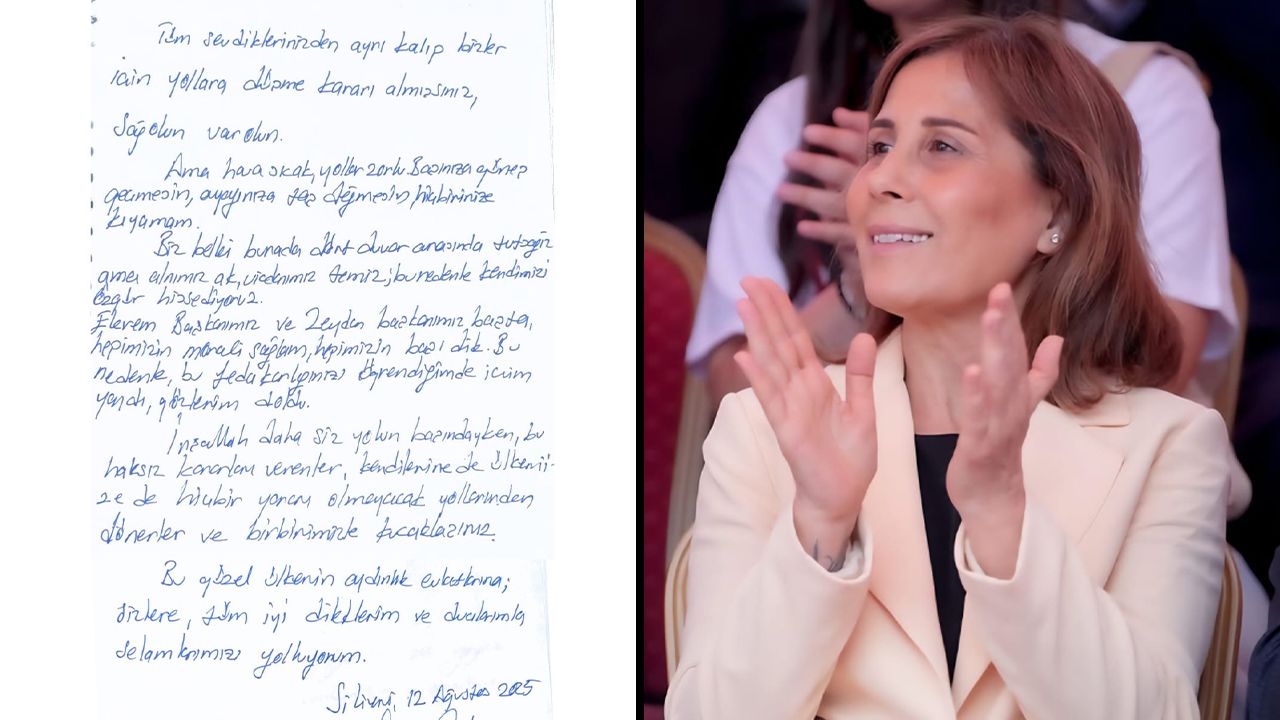 Tüm sevdiklerinizden ayrı kalıp bizler
için yollara düşme kararı almışsınız,
Sağolun varolun.
Ama hava sıcak, yollar zorlu Başınıza güneş
geçmesin, ayağınıza taş değmesin, hiçbirinize
kıyamam.
Biz belki burada dört duvar arasında tutsağız
ama alnımız ak, vicdanımız temiz, bu nedenle kendimizi
özgür hissediyoruz.
Ekrem Başkanımız ve Zeydan başkanımız başta,
hepimizin morali sağlam, hepimizin başı dik. Bu
nedenle, bu fedakarlığınızı öğrendiğimde içim
yandı, gözlerim doldu.
İnşallah daha siz yolun başındayken, bu
haksız kararları verenler, kendilerine de ülkemi-
ze de hiçbir yararı olmayacak yollarından
dönerler ve birbirimizle kucaklaşırız.
Bu güzel ülkenin aydınlık evlatlarına;
sizlere, tüm iyi dileklerim ve dualarımla
selamlarımızı yolluyorum.
Silivri, 12 Ağustos 2025